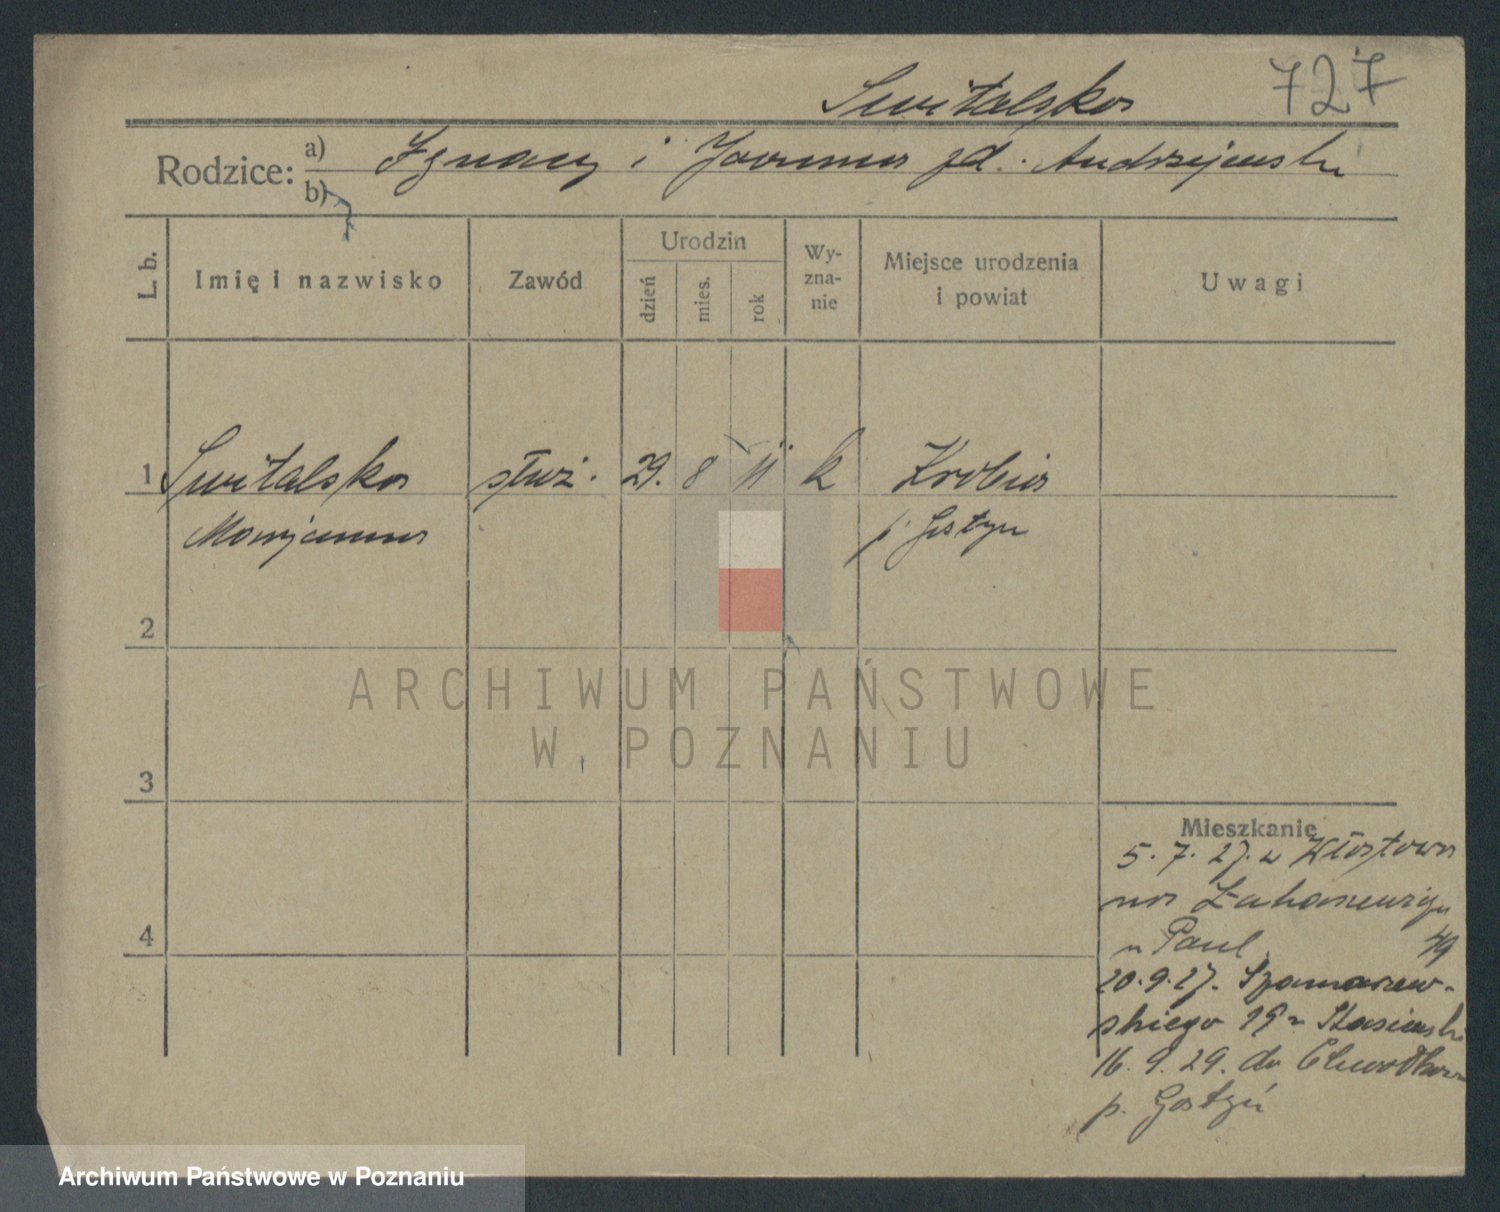 Switalska 727
Rodzice: a) Ignacy i Joanna zd. Andrzejewski
b)
L. b. Imię i nazwisko Zawód Urodzin dzień mies. rok Wy-zna-nie Miejsce urodzenia i powiat Uwagi
1 Switalska służ. 29. 8 11 k Krobia
Marjanna p. Gostyn
2
ARCHIWUM PAŃSTWOWE
W POZNANIU
3
Mieszkanie
5. 7. 27. z
na
4
u Paul 49
20. 9. 27. Szamarzew-
skiego 19 u Stasiewski
16. 9. 29. do
p. Gostyń
Archiwum Państwowe w Poznaniu